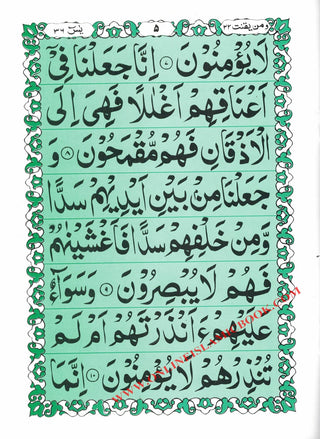 ومن يقنت ٢٢ ٥ يس ٣٦
لَا يُؤْمِنُوْنَ ۷ اِنَّا جَعَلْنَا فِىْٓ
اَعْنَاقِهِمْ اَغْلٰلًا فَهِىَ اِلَى
الْاَذْقَانِ فَهُمْ مُّقْمَحُوْنَ ۸ وَ
جَعَلْنَا مِنْۢ بَيْنِ اَيْدِيْهِمْ سَدًّا
وَّمِنْ خَلْفِهِمْ سَدًّا فَاَغْشَيْنٰهُمْ
فَهُمْ لَا يُبْصِرُوْنَ ۹ وَسَوَآءٌ
عَلَيْهِمْ ءَاَنْذَرْتَهُمْ اَمْ لَمْ
تُنْذِرْهُمْ لَا يُؤْمِنُوْنَ ۱۰ اِنَّمَا
WWW.ONLINEISLAMICBOOK.COM